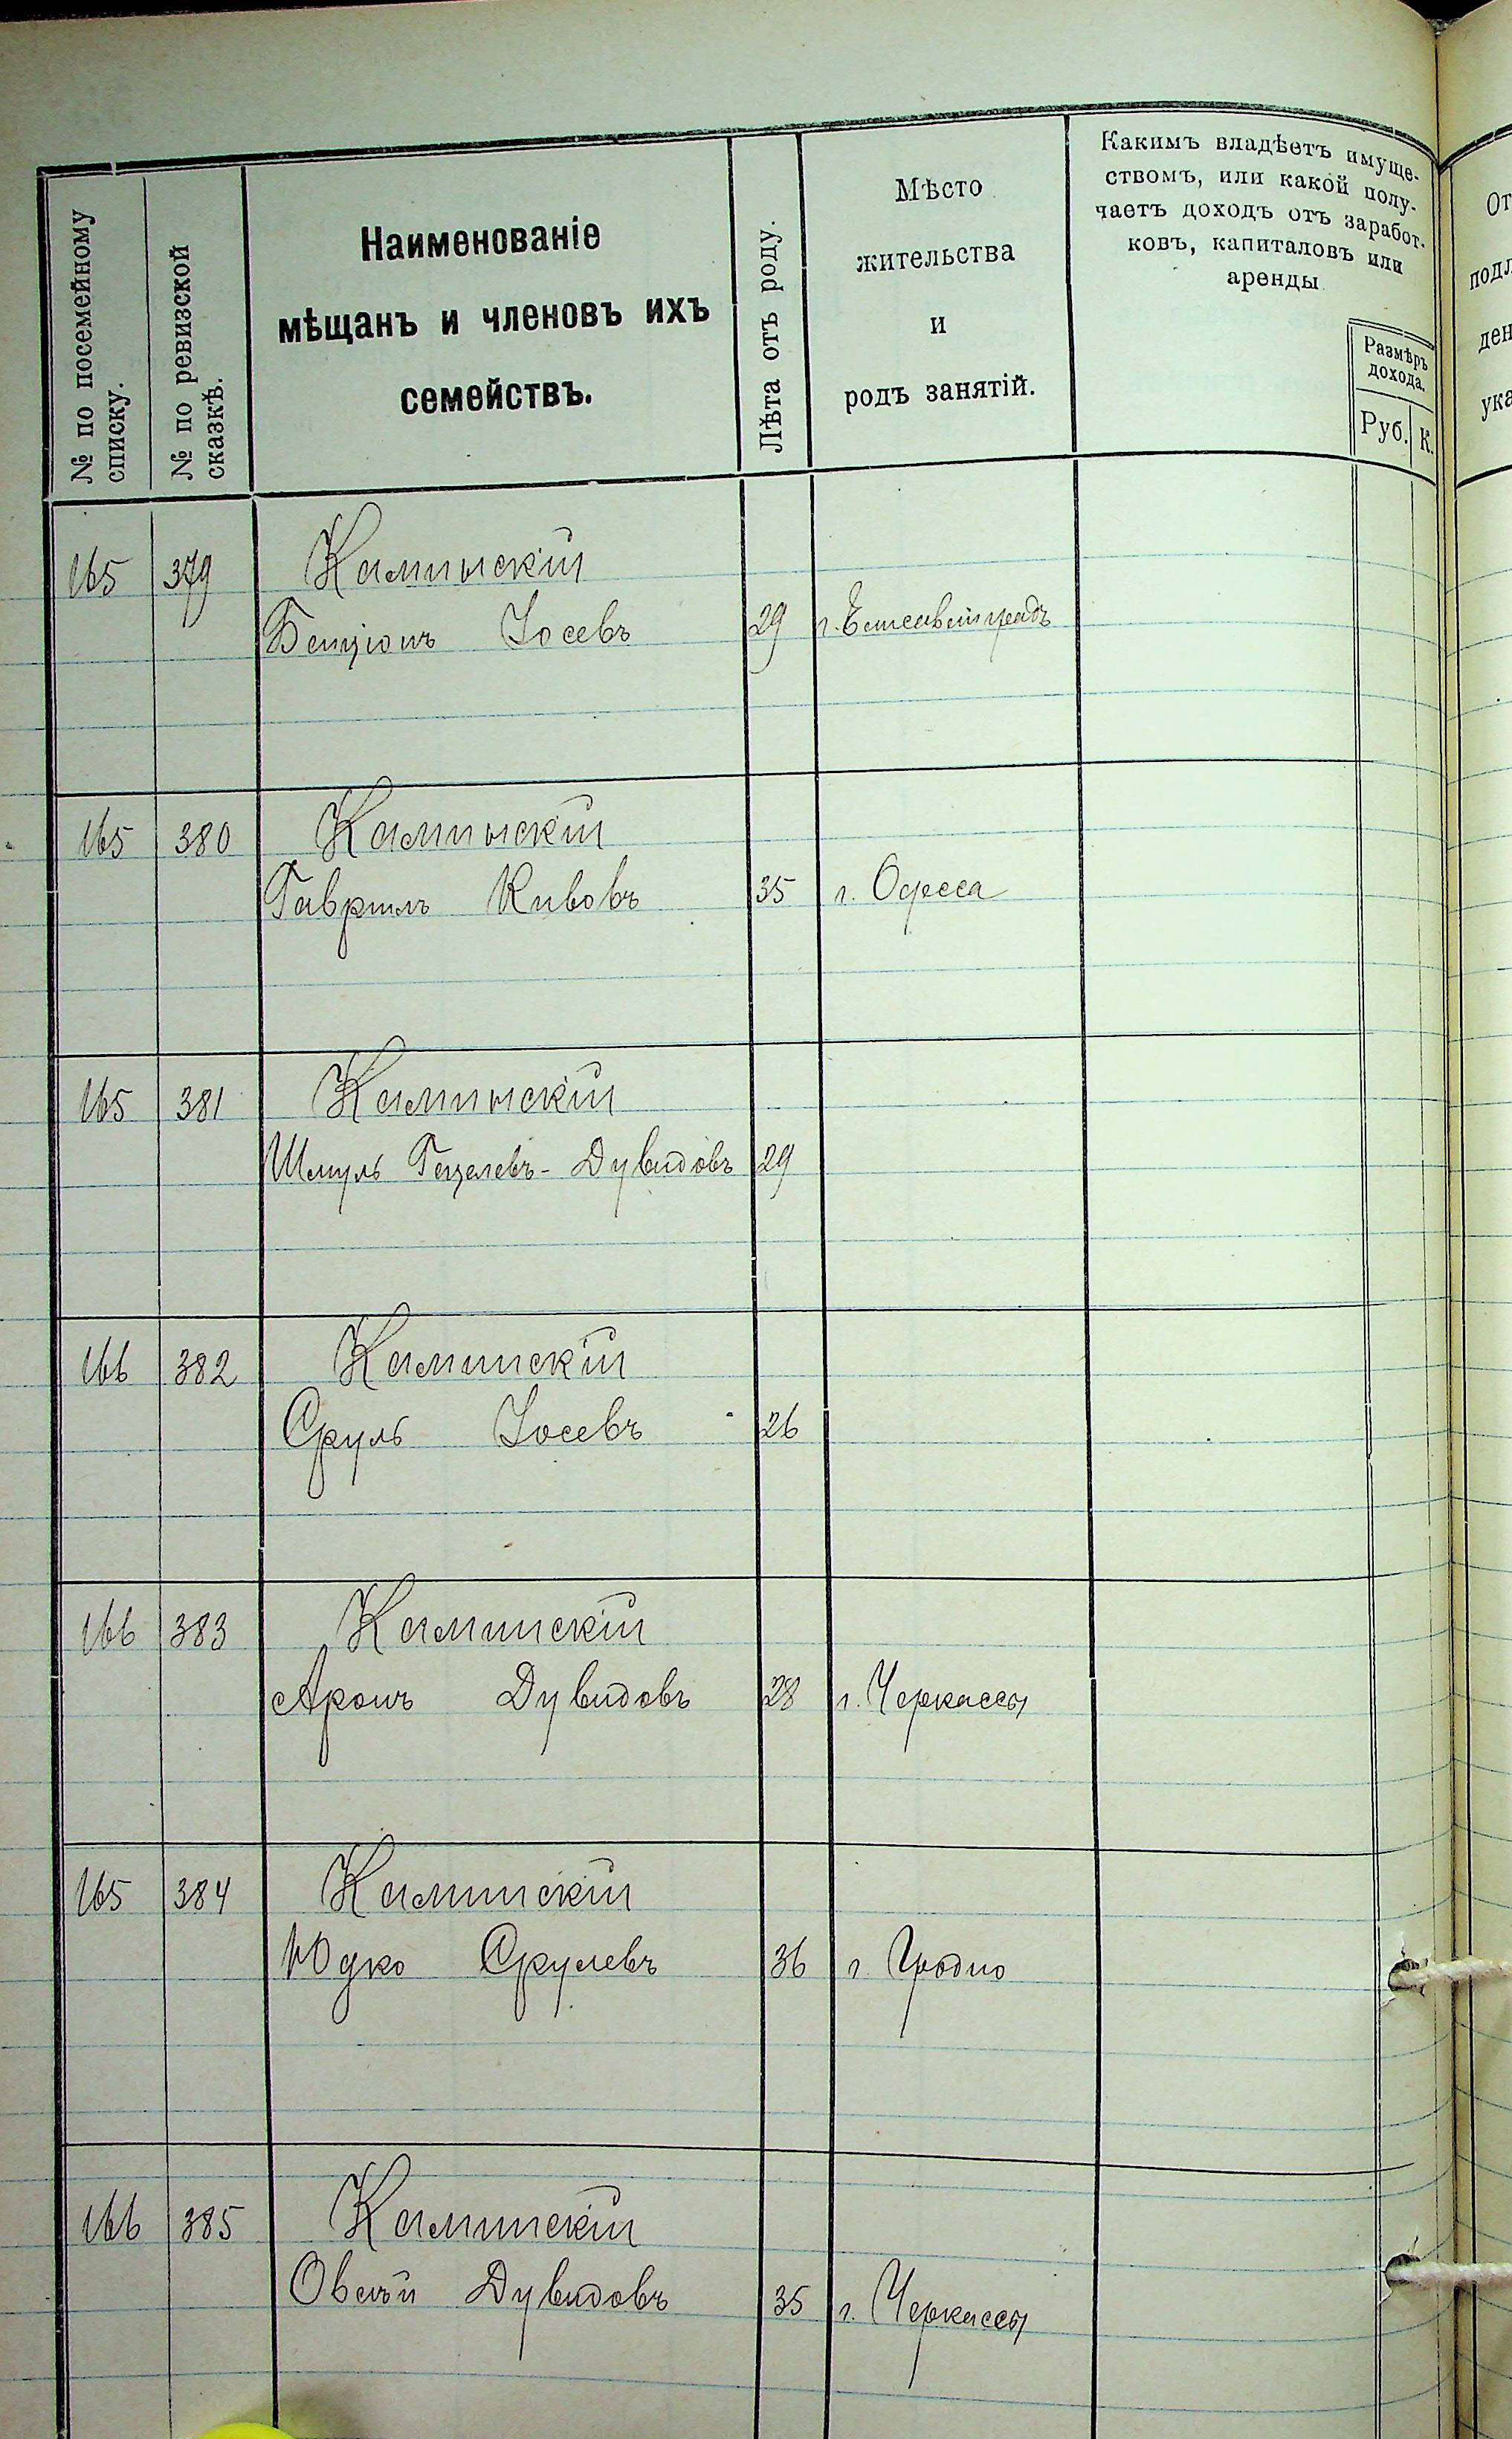 № по посемейному
списку.
№ по ревизской
сказкѣ.
Наименованіе
мѣщанъ и членовъ ихъ
семействъ.
Лѣта отъ роду.
Мѣсто
жительства
и
родъ занятій.
Какимъ владѣетъ имуще-
ствомъ, или какой полу-
чаетъ доходъ отъ заработ-
ковъ, капиталовъ или
аренды
Размѣръ
дохода.
Руб. К.
165 379 Каминскій
Бенціонъ Іосевъ 29 г. Елисаветградъ
165 380 Каминскій
Гаврилъ Кивовъ 35 г. Одесса
165 381 Каминскій
Шмуль Гецелевъ-Дувидовъ 29
166 382 Каминскій
Сруль Іосевъ 26
166 383 Каминскій
Аронъ Дувидовъ 28 г. Черкассы
165 384 Каминскій
Юдко Срулевъ 36 г. Гродно
166 385 Каминскій
Овсѣй Дувидовъ 35 г. Черкассы
От
ден
ука